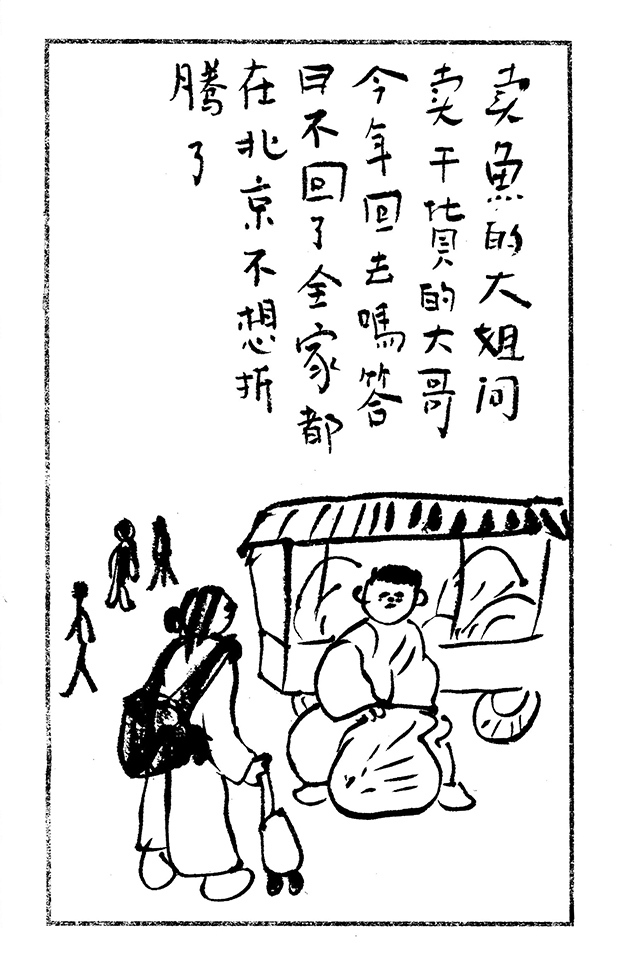 卖魚的大姐问
卖干貨的大哥
今年回去嗎答
曰不回了全家都
在北京不想折
腾了